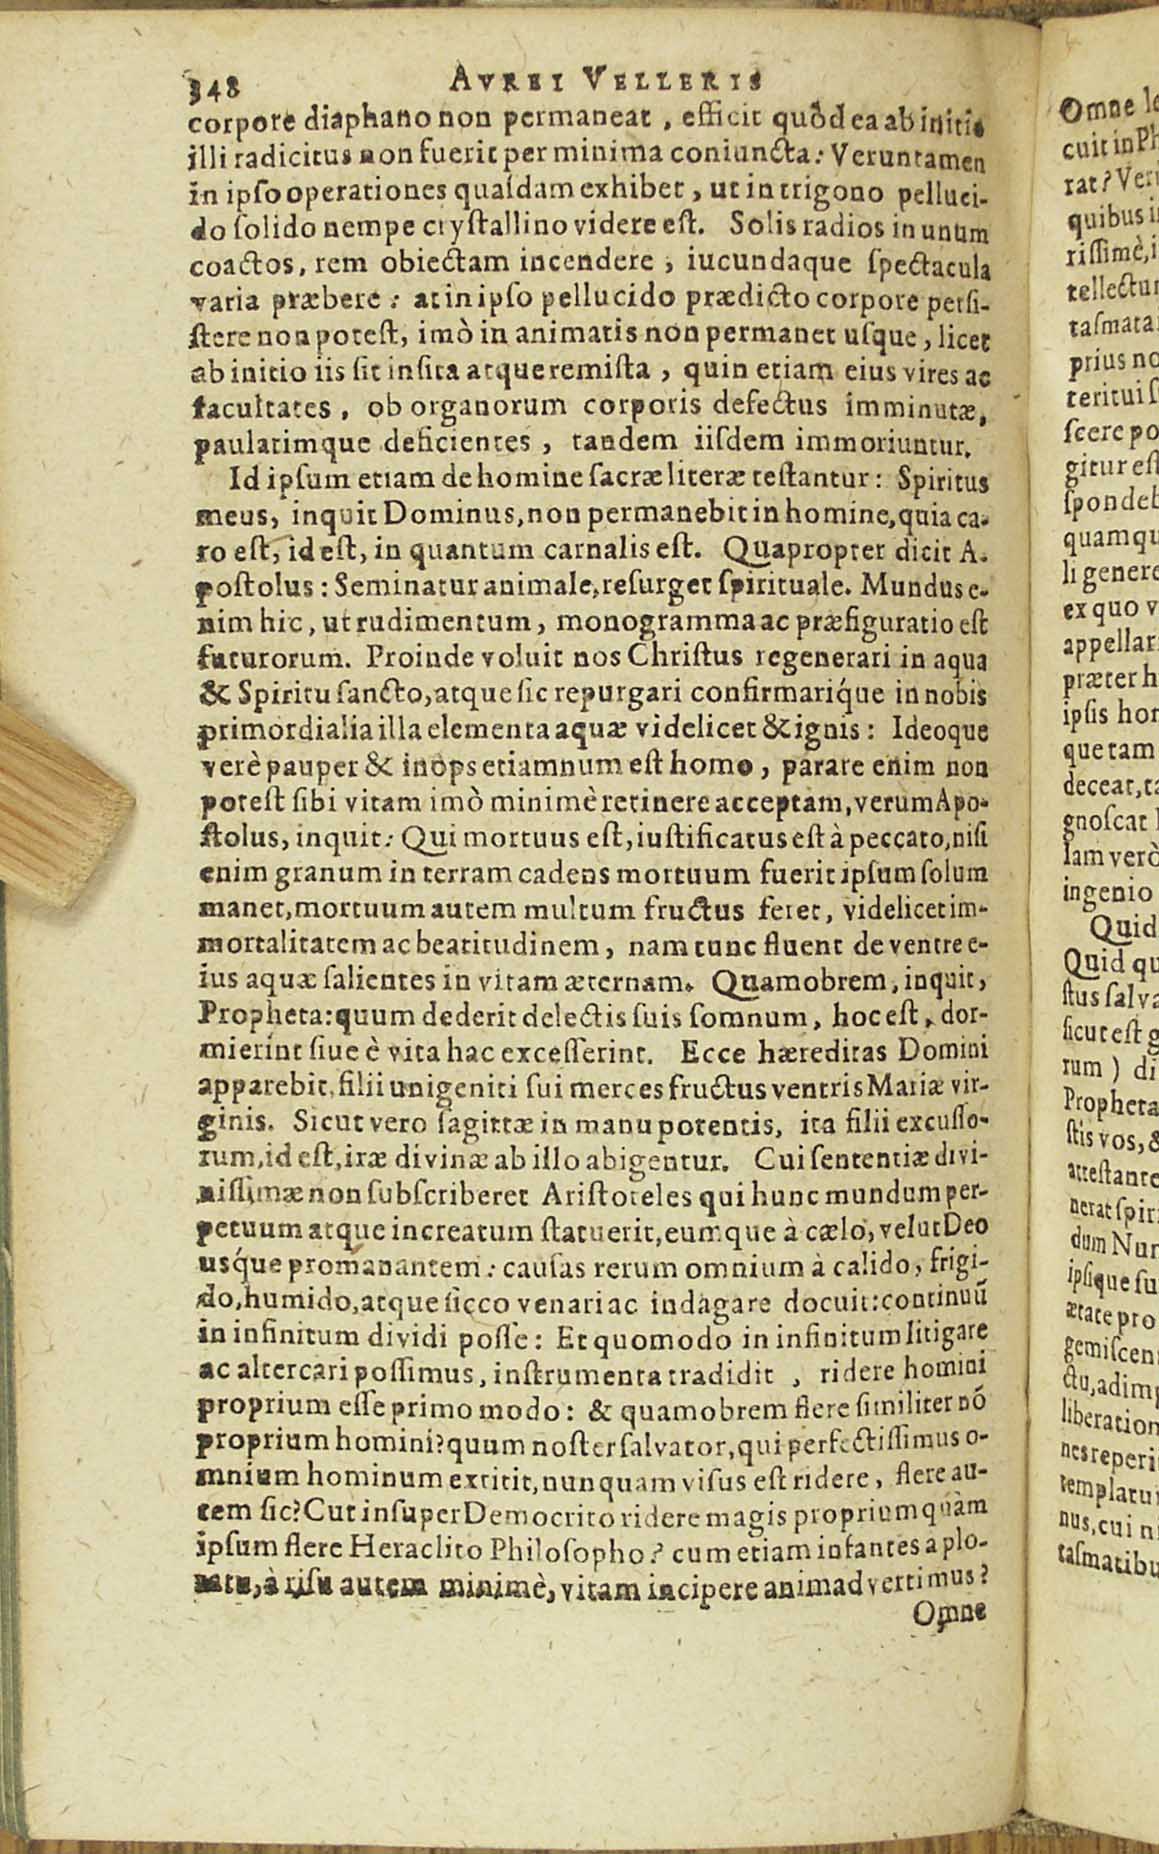 348 AVREI VELLERIS
corpore diaphano non permaneat, efficit quòd ea ab initio
illi radicitus non fuerit per minima coniuncta: Veruntamen
in ipso operationes quasdam exhibet, ut in trigono pelluci-
do solido nempe crystallino videre est. Solis radios in unum
coactos, rem obiectam incendere, iucundaque spectacula
varia præbere: at in ipso pellucido prædicto corpore persi-
stere non potest, imò in animatis non permanet usque, licet
ab initio iis sit insita atque remista, quin etiam eius vires ac
facultates, ob organorum corporis defectus imminutæ,
paulatimque deficientes, tandem iisdem immoriuntur.
Id ipsum etiam de homine sacræ literæ testantur: Spiritus
meus, inquit Dominus, non permanebit in homine, quia ca-
ro est, id est, in quantum carnalis est. Quapropter dicit A-
postolus: Seminatur animale, resurget spirituale. Mundus e-
nim hic, ut rudimentum, monogramma ac præfiguratio est
futurorum. Proinde voluit nos Christus regenerari in aqua
& Spiritu sancto, atque sic repurgari confirmariq́ue in nobis
primordialia illa elementa aquæ videlicet & ignis: Ideoque
verè pauper & inops etiamnum est homo, parare enim non
potest sibi vitam imò minimè retinere acceptam, verum Apo-
stolus, inquit: Qui mortuus est, iustificatus est à peccato, nisi
enim granum in terram cadens mortuum fuerit ipsum solum
manet, mortuum autem multum fructus feret, videlicet im-
mortalitatem ac beatitudinem, nam tunc fluent de ventre e-
ius aquæ salientes in vitam æternam. Quamobrem, inquit,
Propheta: quum dederit delectis suis somnum, hoc est, dor-
mierint siue è vita hac excesserint. Ecce hæreditas Domini
apparebit, filii unigeniti sui merces fructus ventris Mariæ vir-
ginis. Sicut vero sagittæ in manu potentis, ita filii excusso-
rum, id est, iræ divinæ ab illo abigentur. Cui sententiæ divi-
nissimæ non subscriberet Aristoteles qui hunc mundum per-
petuum atque increatum statuerit, eumque à cælo, velut Deo
usq́ue promanantem: causas rerum omnium à calido, frigi-
do, humido, atque sicco venari ac indagare docuit: continuū
in infinitum dividi posse: Et quomodo in infinitum litigare
ac altercari possimus, instrumenta tradidit, ridere homini
proprium esse primo modo: & quamobrem flere similiter nō
proprium homini? quum noster salvator, qui perfectissimus o-
mnium hominum extitit, nunquam visus est ridere, flere au-
tem sic? Cur insuper Democrito ridere magis proprium quàm
ipsum flere Heraclito Philosopho? cum etiam infantes a plo-
ratu, à risu autem minimè, vitam incipere animadvertimus?
Omne
Omne
cuit in Ph
rat? Veri
quibus i
rissimè, i
tellectu
tasmata
prius no
terit uis
scere po
gitur est
spondeb
quamqu
li genere
ex quo v
appellar
præter h
ipsis hor
que tam
deceat, ta
gnoscat
lam verò
ingenio
Quid
Quid qu
stus salva
sicut est g
rum) di
Propheta
stis vos, &
attestante
nerat spir
dum Nu
ipsique su
ætate pro
gemiscen
ctu, adim
liberation
nes reperi
templatu
nus, cui ni
tasmatibu